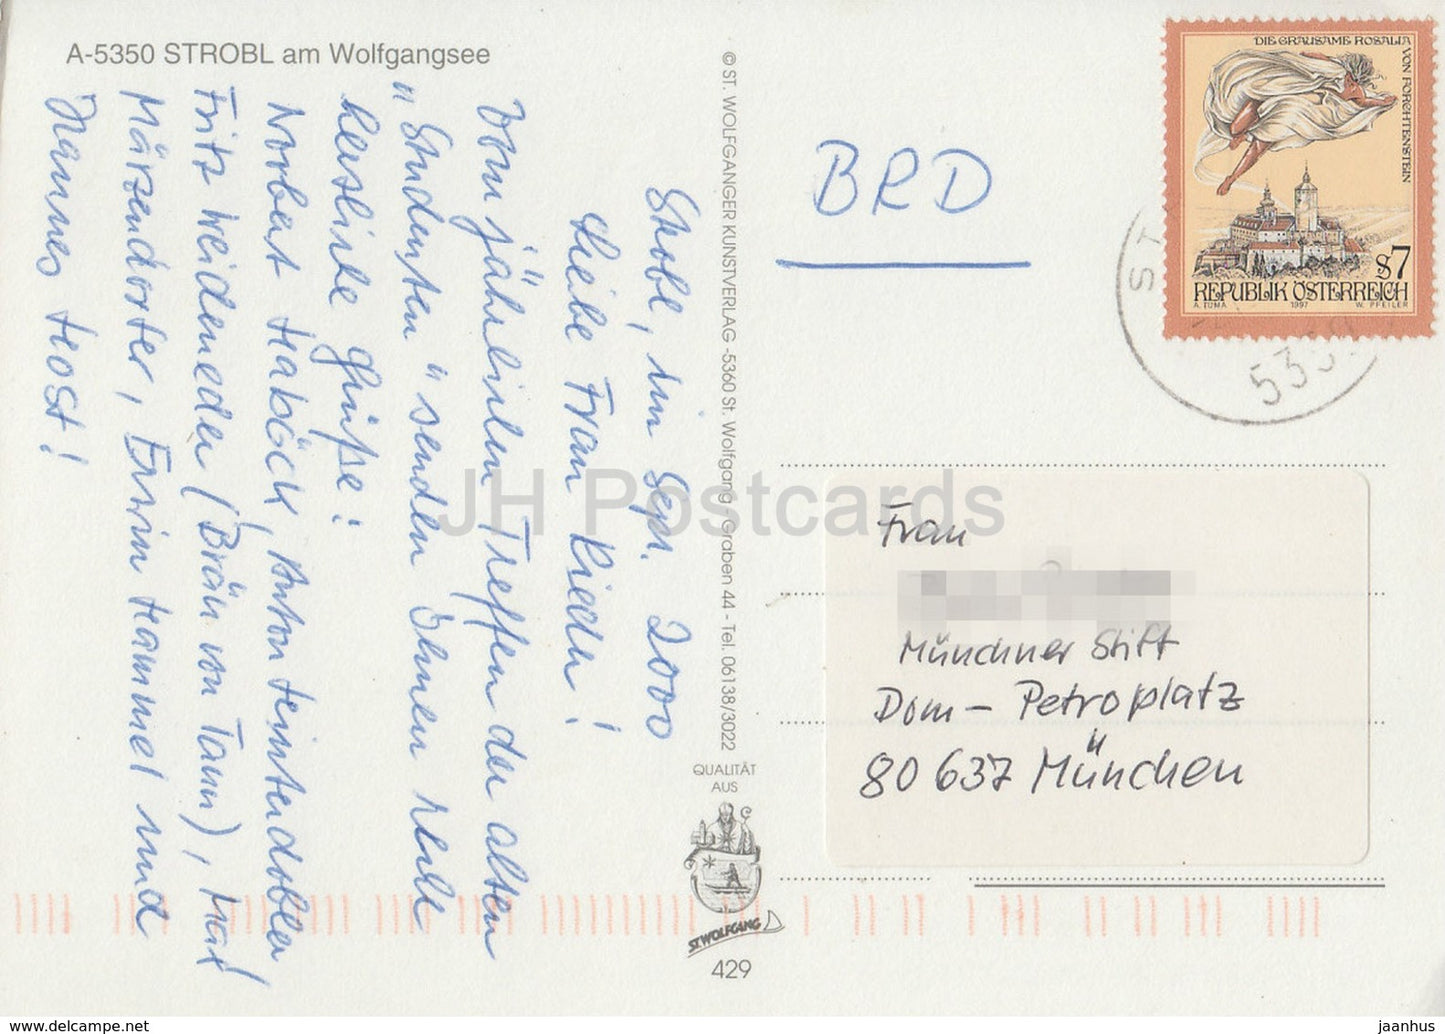 A-5350 STROBL am Wolfgangsee
Strobl, im Sept. 2000
Liebe Frau Rieder!
Vom jährlichen Treffen der alten
"Studenten" senden Ihnen viele
herzliche Grüße:
Norbert Haböck, Anton Heintendobler
Fritz Weideneder (Bräu von Tann), Karl
Märzendorfer, Erwin Hammel und
Hannes Host!
© ST. WOLFGANGER KUNSTVERLAG -5360 St. Wolfgang / Graben 44 - Tel. 06138/3022
QUALITÄT
AUS
ST. WOLFGANG
429
BRD
DIE GRAUSAME ROSALIA
VON FORCHTENSTEIN
S7
REPUBLIK ÖSTERREICH
A. TUMA 1997 W. PFEILER
ST
Frau
Münchner Stift
Dom-Petroplatz
80 637 München
JH Postcards
jaanhus
hip-postcard.com